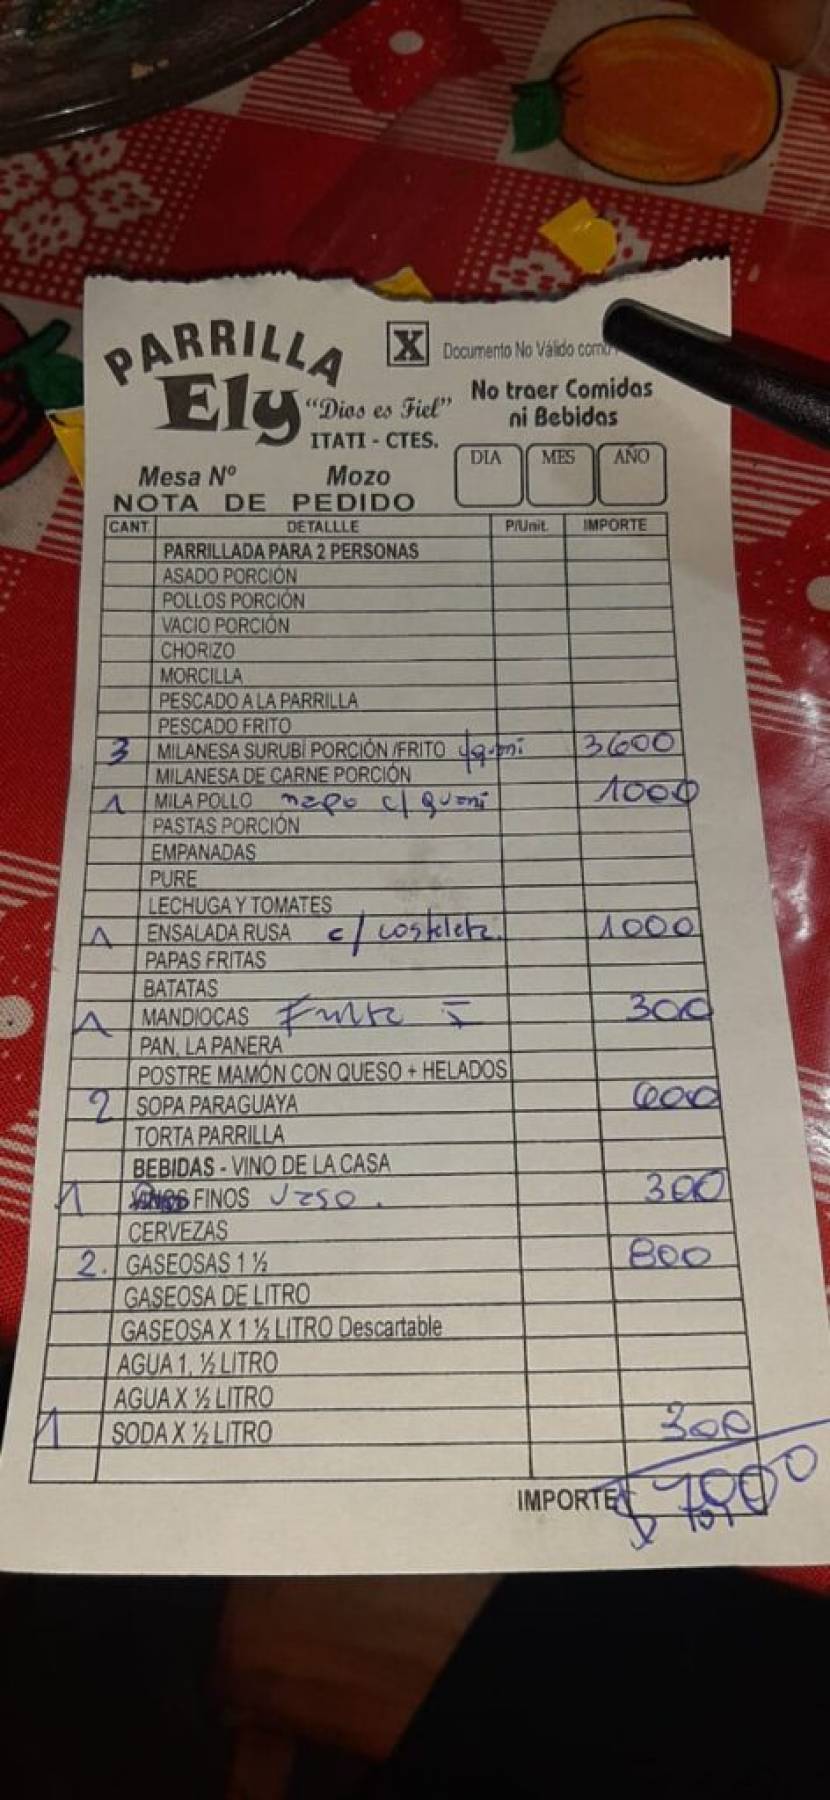 PARRILLA
Ely
"Dios es Fiel"
ITATI - CTES.
X
Documento No Válido como
No traer Comidas
ni Bebidas
DIA MES AÑO
Mesa Nº Mozo
NOTA DE PEDIDO
CANT. DETALLLE P/Unit. IMPORTE
PARRILLADA PARA 2 PERSONAS
ASADO PORCIÓN
POLLOS PORCIÓN
VACIO PORCIÓN
CHORIZO
MORCILLA
PESCADO A LA PARRILLA
PESCADO FRITO
3 MILANESA SURUBÍ PORCIÓN /FRITO 3600
MILANESA DE CARNE PORCIÓN
1 MILA POLLO napo c/ guarni 1000
PASTAS PORCIÓN
EMPANADAS
PURE
LECHUGA Y TOMATES
1 ENSALADA RUSA c/ costeleta. 1000
PAPAS FRITAS
BATATAS
1 MANDIOCAS 300
PAN, LA PANERA
POSTRE MAMÓN CON QUESO + HELADOS
2 SOPA PARAGUAYA 600
TORTA PARRILLA
BEBIDAS - VINO DE LA CASA
1 FINOS vaso. 300
CERVEZAS
2. GASEOSAS 1 ½ 800
GASEOSA DE LITRO
GASEOSA X 1 ½ LITRO Descartable
AGUA 1, ½ LITRO
AGUA X ½ LITRO
1 SODA X ½ LITRO 300
IMPORTE $